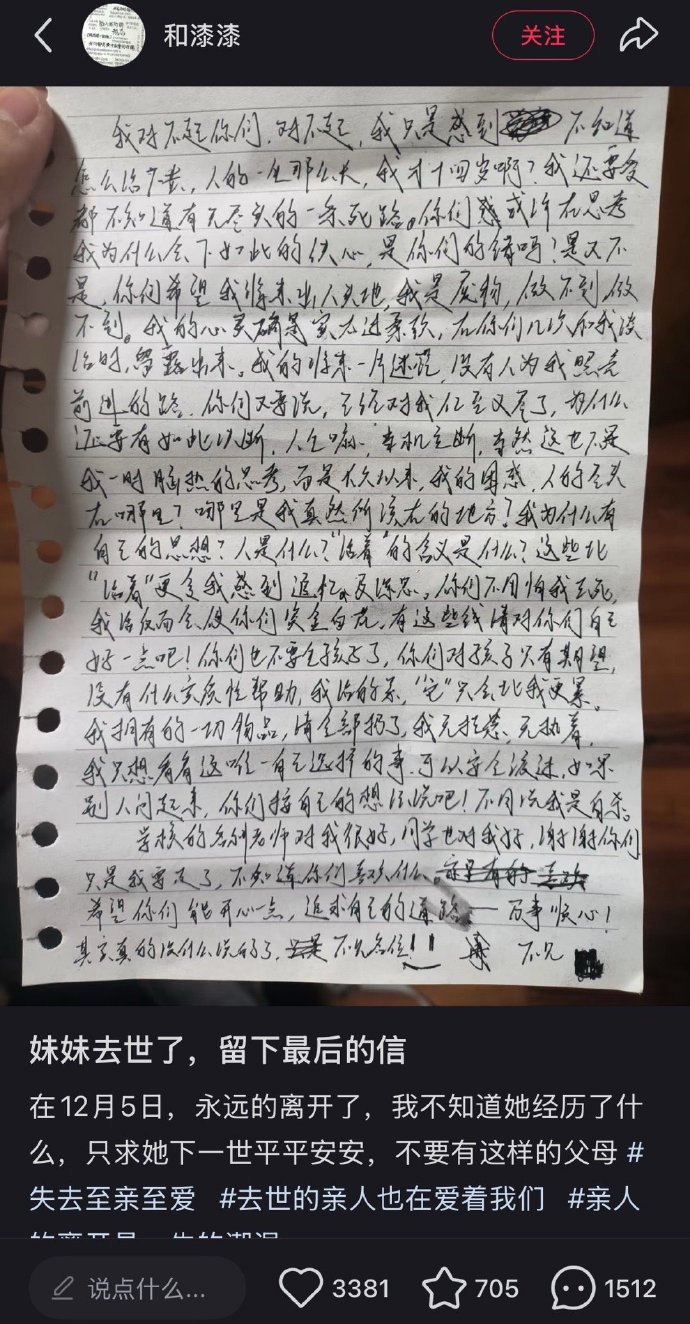 和漆漆
关注
我对不起你们，对不起，我只是感到 不知道
怎么活下去，人的一生那么长，我才十四岁啊？我还要受
都不知道有无尽头的一条死路。你们 或许在思考
我为什么会下如此的决心，是你们的错吗？是又不
是，你们希望我将来出人头地，我是废物，做不到，做
不到。我的心灵确是实太过柔软，在你们几次和我谈
话时，曾露出来。我的将来一片迷茫，没有人为我照亮
前进的路，你们又要说，已经对我仁至义尽了，为什么
还要有如此以断，人生嘛，当机立断，当然这也不是
我一时脑热的思考，而是太久以来，我的困惑，人的尽头
在哪里？哪里是我真然所该在的地方？我为什么有
自己的思想？人是什么？“活着”的含义是什么？这些比
“活着”更令我感到追忆及深思。你们不用怕我去死，
我活反而会使你们资金白花，有这些钱请对你们自己
好一点吧！你们也不要生孩子了，你们对孩子只有期望，
没有什么实质性帮助，我活的累，“它”只会比我更累。
我拥有的一切物品，请全部扔了，我无挂念，无执着，
我只想看着这唯一自己选择的事，可以安全渡过，如果
别人问起来，你们按自己的想法说吧！不用说我是自杀。
学校的各别老师对我很好，同学也对我好，谢谢你们
只是我要走了，不知道你们喜欢什么
希望你们能开心一点，追求自己的道路——万事顺心！
其实真的没什么说的了， 不见各位！！ 再 不见
妹妹去世了，留下最后的信
在12月5日，永远的离开了，我不知道她经历了什
么，只求她下一世平平安安，不要有这样的父母 #
失去至亲至爱 #去世的亲人也在爱着我们 #亲人
说点什么... 3381 705 1512